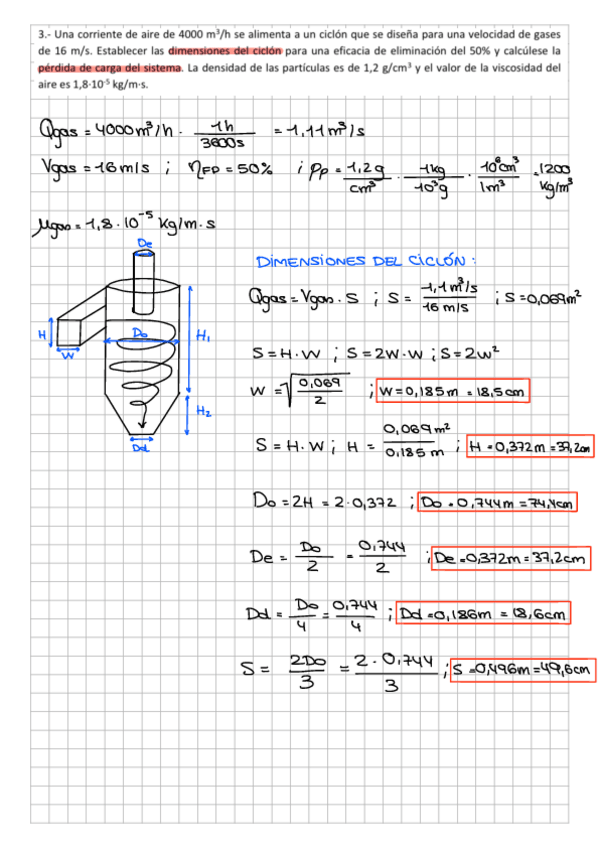 3.- Una corriente de aire de 4000 m³/h se alimenta a un ciclón que se diseña para una velocidad de gases
de 16 m/s. Establecer las dimensiones del ciclón para una eficacia de eliminación del 50% y calcúlese la
pérdida de carga del sistema. La densidad de las partículas es de 1,2 g/cm³ y el valor de la viscosidad del
aire es 1,8·10⁻⁵ kg/m·s.
Qgas = 4000 m³/h · 1h / 3600s = 1,11 m³/s
Vgas = 16 m/s ; ηFP = 50% ; ρp = 1,2 g / cm³ · 1kg / 10³g · 10⁶cm³ / 1m³ = 1200 kg/m³
μgas = 1,8 · 10⁻⁵ kg/m·s
De
DIMENSIONES DEL CICLÓN:
Qgas = Vgas · S ; S = 1,1 m³/s / 16 m/s ; S = 0,069 m²
H
W
Do
H₁
H₂
Dd
S = H · W ; S = 2W · W ; S = 2W²
W = √(0,069 / 2) ; W = 0,185 m = 18,5 cm
S = H · W ; H = 0,069 m² / 0,185 m ; H = 0,372 m = 37,2 cm
Do = 2H = 2 · 0,372 ; Do = 0,744 m = 74,4 cm
De = Do / 2 = 0,744 / 2 ; De = 0,372 m = 37,2 cm
Dd = Do / 4 = 0,744 / 4 ; Dd = 0,186 m = 18,6 cm
S = 2Do / 3 = 2 · 0,744 / 3 ; S = 0,496 m = 49,6 cm